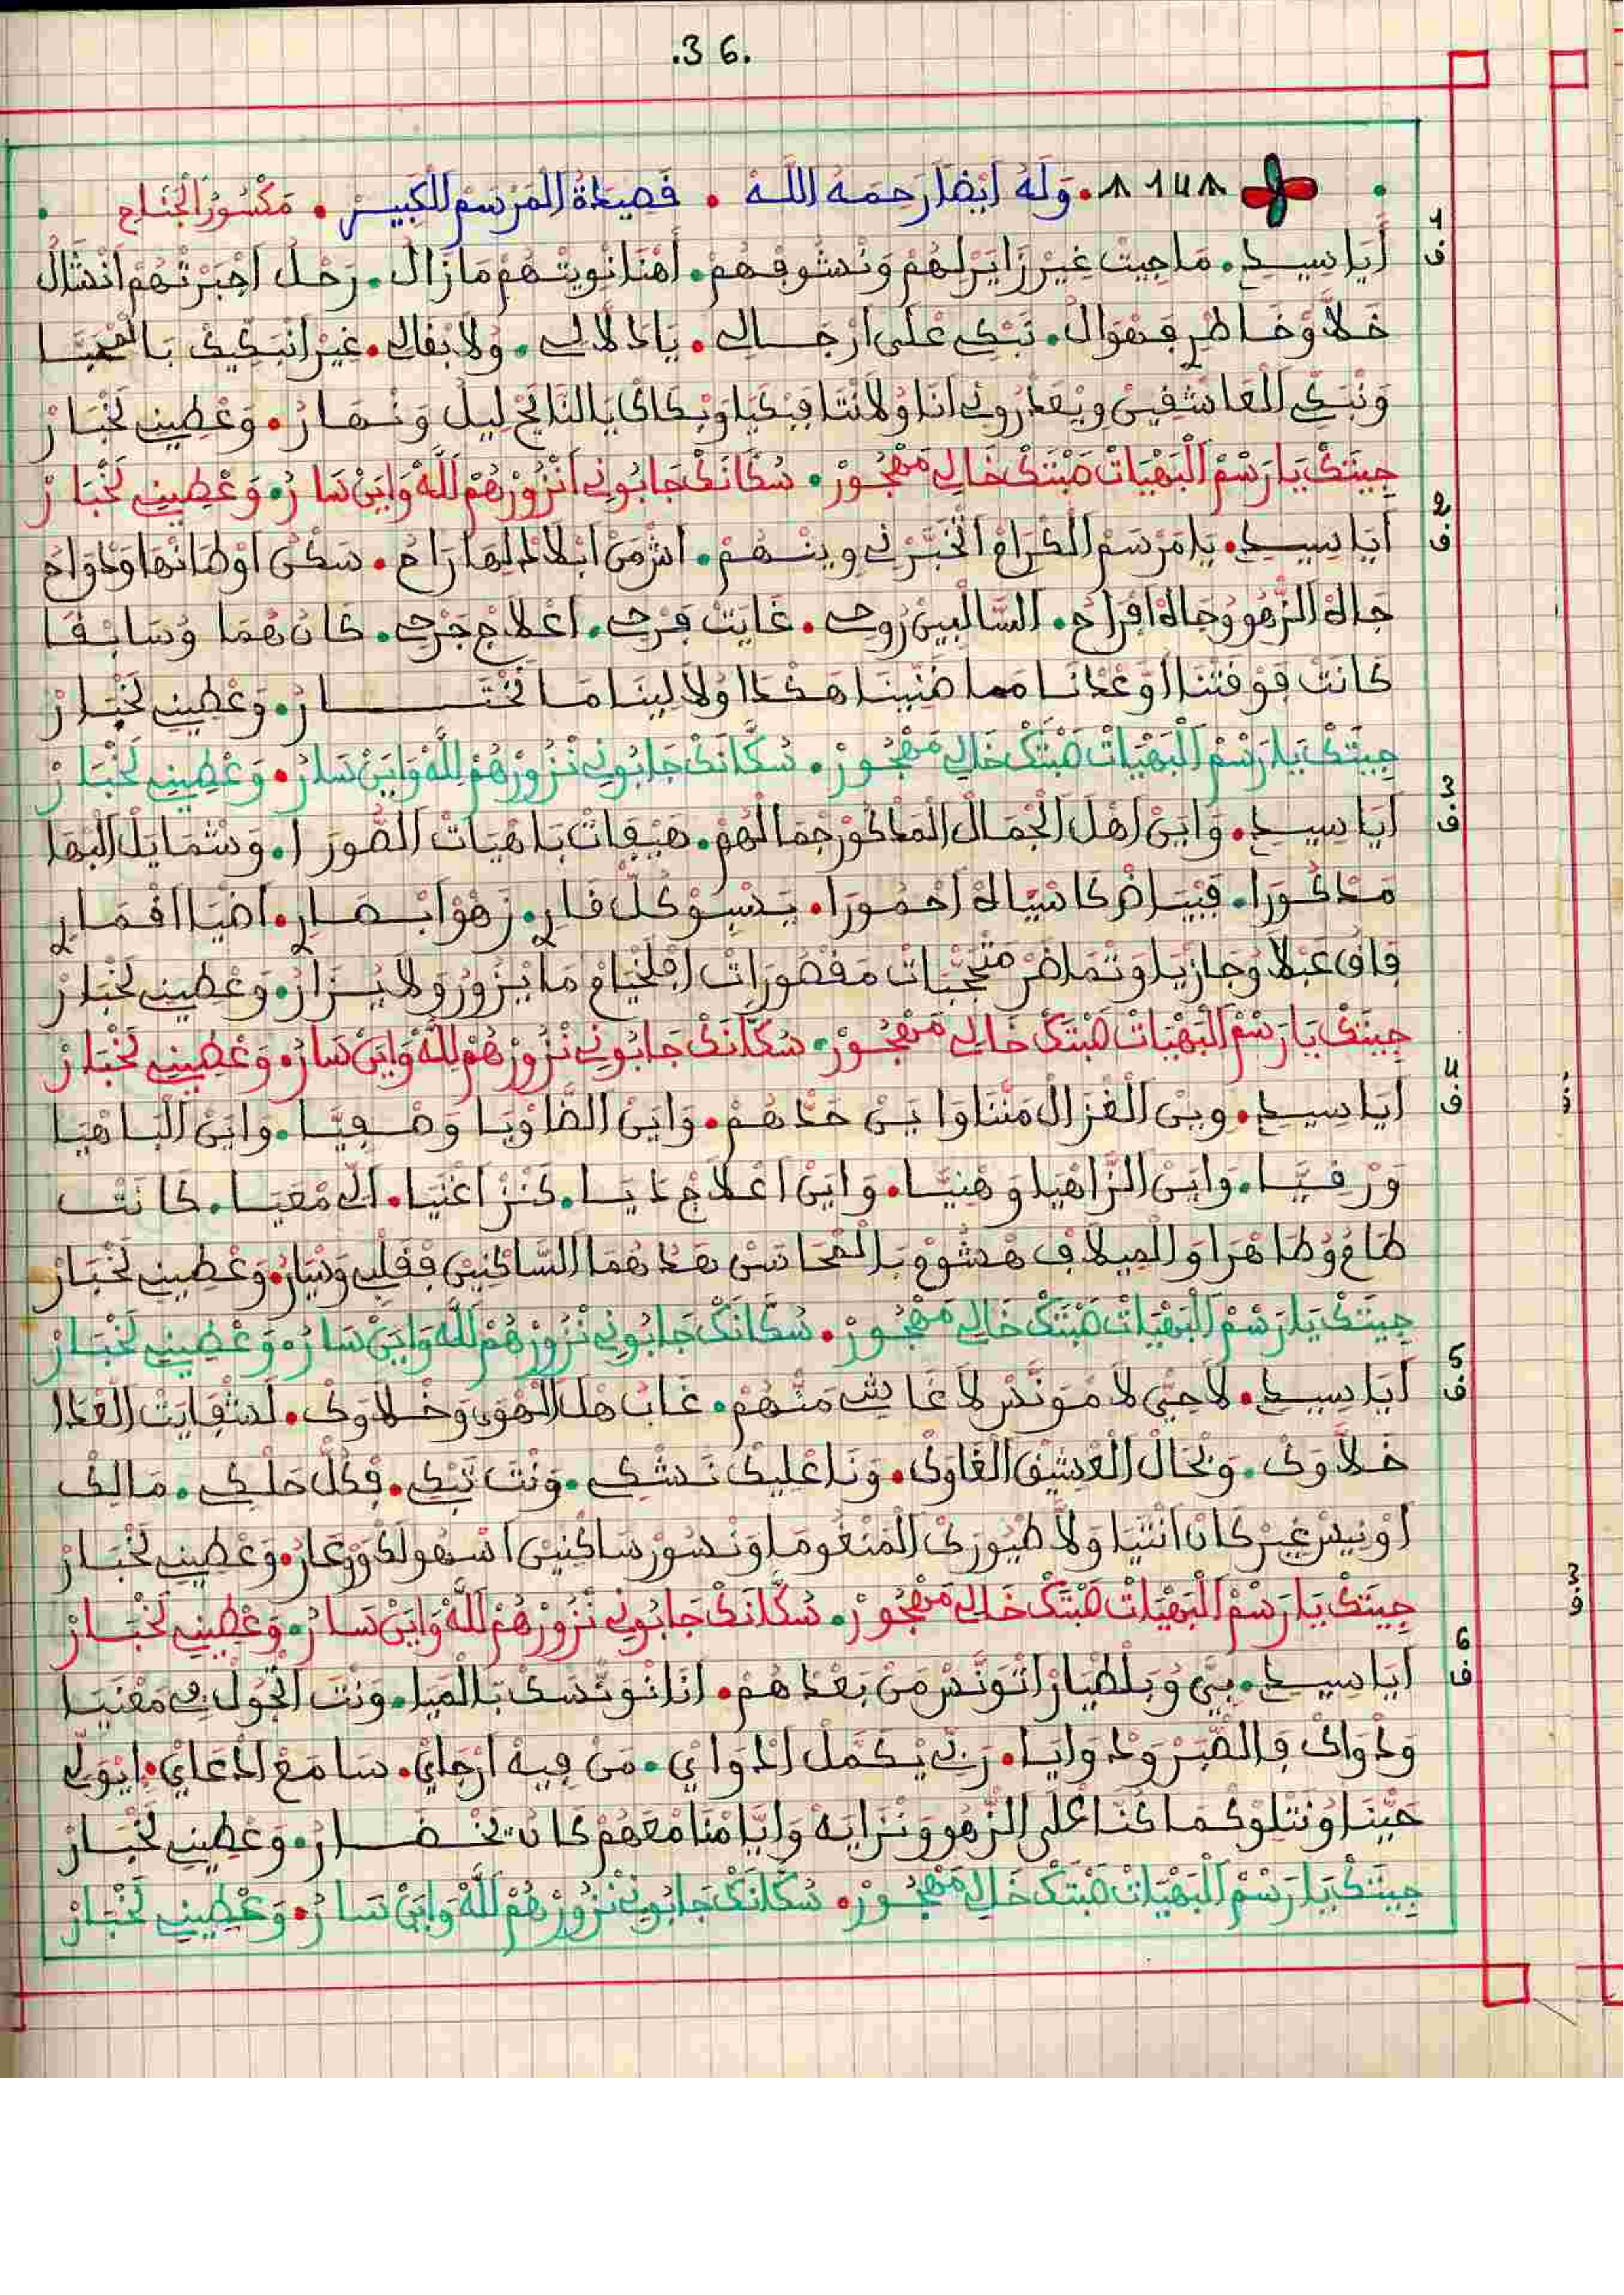 .36.
8 14 8 . وَلَهُ أيْضًا رَحِمَهُ اللَّهْ . قصيدة المَرْسَمْ الكَبِيرْ . مَكْسُورْ الجْنَاحْ
1 ف
أيَا سِيدِي . مَا جِيتْ غِيرْ زَايَرْ لهُمْ وَنْشُوفْهُمْ . أهْنَا نْويتْهُمْ مَا زَالْ . رَحْلُ اجْبَرْتْهُمْ انْشَالُ
خَلاَّوْ خَاطْرِي فَهْوَالْ . نَبْكِي عْلَى ارْجَالِي . يَا دْلاَلِي . وُلاَ بْقَالِي . غِيرْ انْبَكِّيكْ بَالْمْحَبَّا
وَنْبَكِّي العَاشْقِينْ وِيعَذْرُونِي أنَا وُلاَنْتَا فِبْكَايَا وَبْكَاكْ يَا النَّايَحْ لِيلْ وَنْهَارْ . وَعْطِينِي لَخْبَارْ
جِيتَكْ يَا رَسْمْ البَهْيَاتْ صَبْتَكْ خَالِي مَهْجُورْ . سُكَّانَكْ جَابُونِي انْزُورْهُمْ لَلَّهْ وَايَنْ سَارُ . وَعْطِينِي لَخْبَارْ
2 ف
أيَا سِيدِي . يَا مَرْسَمْ الكْرَامْ اتْخَبَّرْنِي وِينْهُمْ . اشْمَنْ ابْلاَدْ لِيهَا رَاحُ . سَكْنُ اوْطَانْهَا وَدْوَاحُ
جَادْ الزّْهُو وُجَادْ افْرَاحُ . السَّالْبِينْ رُوحِي . غَايَتْ فَرْحِي . اعْلاَجْ جَرْحِي . كَانْ هُمَا وُسَابْقَا
كَانَتْ فَوْقَتْنَا اوْعْدَانَا مَا ضَنِّينَا هَكْدَا وُلاَ لِينَا مَا نَخْتَارْ . وَعْطِينِي لَخْبَارْ
جِيتَكْ يَا رَسْمْ البَهْيَاتْ صَبْتَكْ خَالِي مَهْجُورْ . سُكَّانَكْ جَابُونِي نْزُورْهُمْ لَلَّهْ وَايَنْ سَارُ . وَعْطِينِي لَخْبَارْ
3 ف
أيَا سِيدِي . وَايَنْ اهْلْ الجْمَالْ المَذْكُورْ جْمَالْهُمْ . هِيفَاتْ بَاهْيَاتْ الصُّورَا . وَشْمَايَلْ البْهَا
مَذْكُورَا . فِبْيَاضْ كَاسْيَادْ احْمُورَا . يَسْوِي كُلّْ قَارِي . زَهْوْ ابْصَارِي . اضْيَا اقْمَارِي
فَاقْ عَبْلاَ وُجَازْيَا وَتْمَاضَرْ مَتْحَجّْبَاتْ مَقْصُورَاتْ افْلَخْيَامْ مَا يْزُورْ وَلاَ يُزَارْ . وَعْطِينِي لَخْبَارْ
جِيتَكْ يَا رَسْمْ البَهْيَاتْ صَبْتَكْ خَالِي مَهْجُورْ . سُكَّانَكْ جَابُونِي نْزُورْهُمْ لَلَّهْ وَايَنْ سَارُ . وَعْطِينِي لَخْبَارْ
4 ف
أيَا سِيدِي . وِينْ الغْزَالْ مَنَّانَا وَايَنْ حَدْهُمْ . وَايَنْ الضَّاوْيَا وَصْفِيَّا . وَايَنْ البَاهْيَا
وَرْقِيَّا . وَايَنْ الزَّاهْيَا وَهْنِيَّا . وَايَنْ اعْلاَجْ دَايَا . كَنْزْ اغْنَايَا . الِّي مْعَايَا . كَانَتْ
طَامُ وُطَاهْرَا وَالْمِيلاَفِي مْشُومْ بَالْمْحَاسَنْ هَدْ هُمَا السَّاكْنِينْ فْقَلْبِي وَدْيَارْ . وَعْطِينِي لَخْبَارْ
جِيتَكْ يَا رَسْمْ البَهْيَاتْ صَبْتَكْ خَالِي مَهْجُورْ . سُكَّانَكْ جَابُونِي نْزُورْهُمْ لَلَّهْ وَايَنْ سَارُ . وَعْطِينِي لَخْبَارْ
5 ف
أيَا سِيدِي . لاَ حِيّْ لاَ مْوَنَّسْ لاَ غَاشِي مَنْهُمْ . غَابْ هْلْ الهْوَى وَخْلاَوْكْ . لَشْفَايَتْ العْدَا
خَلاَّوْكْ . وَبْحَالْ العْشِيقْ الغَاوِي . وَنَا عْلِيكْ نَشْكِي . وَنْتَ تَبْكِي . فْكُلّْ حَلْكِي . مَالَكْ
اوْنِيسْ غِيرْ كَانْ انْتَيَا وَلاَّ طْيُورَكْ المَنْغُومَا وَنْسُورْ سَاكْنِينْ اسْهُولَكْ وَوْعَارْ . وَعْطِينِي لَخْبَارْ
جِيتَكْ يَا رَسْمْ البَهْيَاتْ صَبْتَكْ خَالِي مَهْجُورْ . سُكَّانَكْ جَابُونِي نْزُورْهُمْ لَلَّهْ وَايَنْ سَارُ . وَعْطِينِي لَخْبَارْ
6 ف
أيَا سِيدِي . بِيَّ وُبَلْطْيَارْ اتْوَنَّسْ مَنْ بَعْدْهُمْ . أنَا نْوَنّْسَكْ بَالْمَايَا . وَنْتَ اتْجُولْ فِي مَعْنَايَا
وَدْوَاكْ فَالصّْبَرْ وَدْوَايَا . رَبِّي يْكَمَّلْ ادْوَايْ . مَنْ فِيهْ ارْجَايْ . سَامَعْ ادْعَايْ . ايْوَلِّي
حَيّْنَا وُنَتْلَاوْ كِمَا كُنَّا عْلَى الزّْهُو وَنْزَايَهْ وَايَّامْنَا مْعَهُمْ كَانْ يَخْضَارُ . وَعْطِينِي لَخْبَارْ
جِيتَكْ يَا رَسْمْ البَهْيَاتْ صَبْتَكْ خَالِي مَهْجُورْ . سُكَّانَكْ جَابُونِي نْزُورْهُمْ لَلَّهْ وَايَنْ سَارُ . وَعْطِينِي لَخْبَارْ